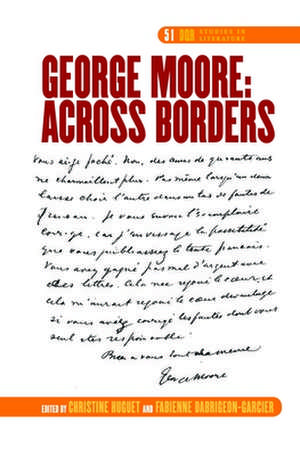 51 DQR STUDIES IN LITERATURE
GEORGE MOORE:
ACROSS BORDERS
Vous ai-je faché. Non, des amis de quarante ans
ne chamaillent plus. Pas même lorsqu'un deux
laisse choir l'autre dans un tas de fautes de
Je vous envoie l'exemplaire
corrigé, car j'envisage la possibilité
que vous publiassiez le texte français.
Vous avez gagné pas mal d'argent avec
lettres. Cela me rejoui le cœur, et
cela m'aurait rejoui le cœur davantage
si vous aviez corrigé les fautes dont vous
seul etes responsable.
Bien a vous tout de meme
Moore
EDITED BY CHRISTINE HUGUET AND FABIENNE DABRIGEON-GARCIER